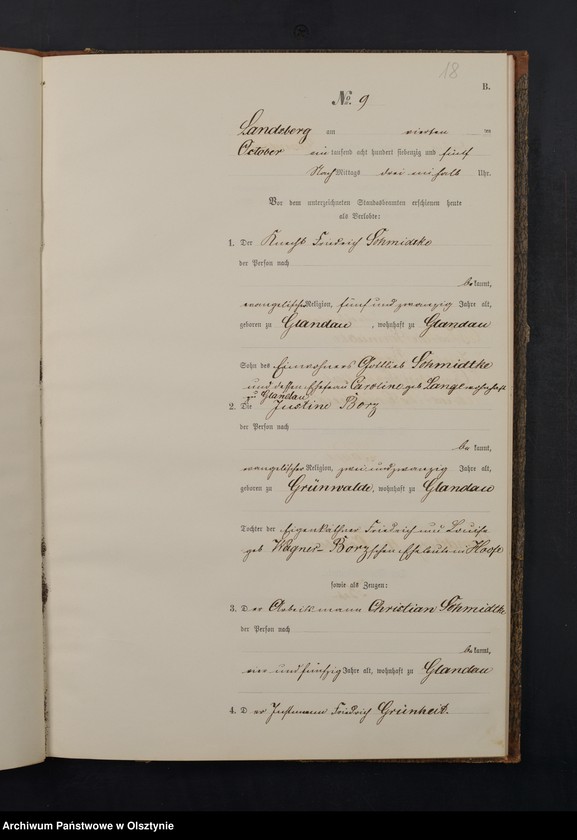 18
B.
No. 9
Landsberg am vierten
October ein tausend acht hundert siebenzig und fünf
Nach Mittags drei ein halb Uhr.
Vor dem unterzeichneten Standesbeamten erschienen heute
als Verlobte:
1. Der Knecht Friedrich Schmidtke
der Person nach
bekannt,
evangelischer Religion, fünf und zwanzig Jahre alt,
geboren zu Glandau, wohnhaft zu Glandau
Sohn des Einwohners Gottlieb Schmidtke
und dessen Ehefrau Caroline geb Lange wohnhaft
zu Glandau
2. Die Justine Borz
der Person nach
bekannt,
evangelischer Religion, zwei und zwanzig Jahre alt,
geboren zu Grünwalde, wohnhaft zu Glandau
Tochter der Eigenkäthner Friedrich und Louise
geb Wagner- Borzschen Eheleute in Hoofe
sowie als Zeugen:
3. Der Arbeitsmann Christian Schmidtke
der Person nach
bekannt,
vier und fünfzig Jahre alt, wohnhaft zu Glandau
4. Der Instmann Friedrich Grünheit.
Archiwum Państwowe w Olsztynie